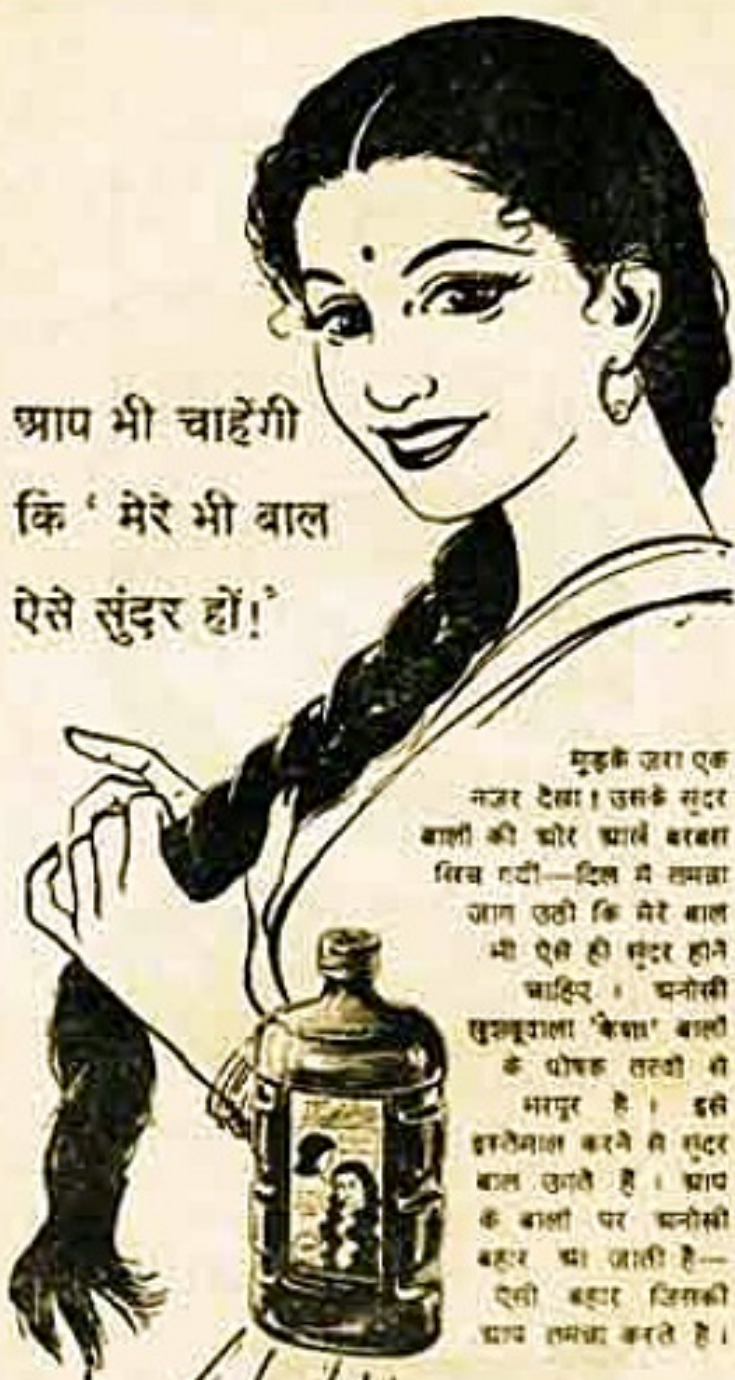 आप भी चाहेंगी
कि ‘ मेरे भी बाल
ऐसे सुंदर हों!’
मुड़के ज़रा एक
नज़र देखा ! उसके सुंदर
बालों की ओर आखें बरबस
खिंच गयीं—दिल में तमन्ना
जाग उठी कि मेरे बाल
भी ऐसे ही सुंदर होने
चाहिए । अनोखी
खुशबूवाला ‘केशा’ बालों
के पोषक तत्वों से
भरपूर है । इसे
इस्तेमाल करने से सुंदर
बाल उगते हैं । आप
के बालों पर अनोखी
बहार आ जाती है—
ऐसी बहार जिसकी
आप तमन्ना करते हैं ।